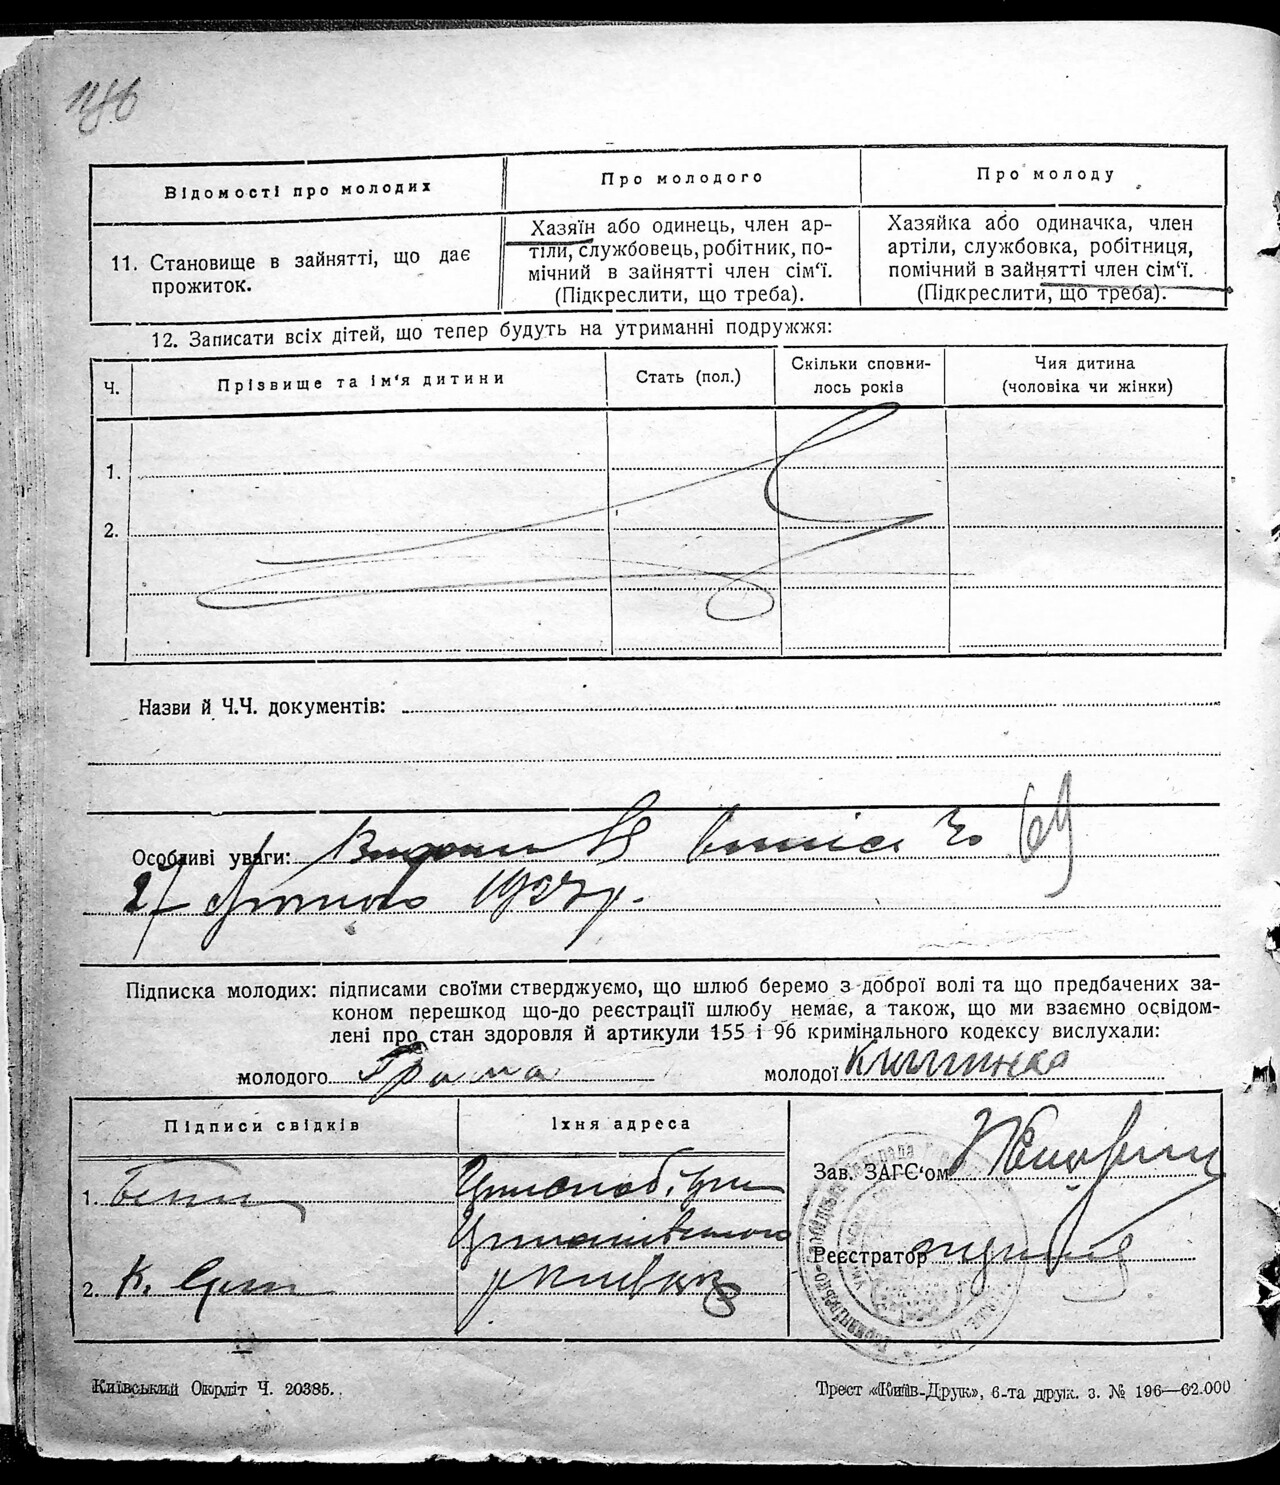 Відомості про молодих
Про молодого
Про молоду
11. Становище в зайнятті, що дає
прожиток.
Хазяїн або одинець, член ар-
тіли, службовець, робітник, по-
мічний в зайнятті член сім'ї.
(Підкреслити, що треба).
Хазяйка або одиначка, член
артіли, службовка, робітниця,
помічний в зайнятті член сім'ї.
(Підкреслити, що треба).
12. Записати всіх дітей, що тепер будуть на утриманні подружжя:
Ч.
Прізвище та ім'я дитини
Стать (пол.)
Скільки сповни-
лось років
Чия дитина
(чоловіка чи жінки)
1.
2.
Назви й Ч.Ч. документів:
Особливі уваги: 69
27 лютого 1927 р.
Підписка молодих: підписами своїми стверджуємо, що шлюб беремо з доброї волі та що предбачених за-
коном перешкод що-до реєстрації шлюбу немає, а також, що ми взаємно освідом-
лені про стан здоровля й артикули 155 і 96 кримінального кодексу вислухали:
молодого
молодої
Підписи свідків
Їхня адреса
1.
2. К.
Зав. ЗАГС'ом
Реєстратор
Київський Окрліт Ч. 20385.
Трест «Київ-Друк», 6-та друк. з. № 196—62.000